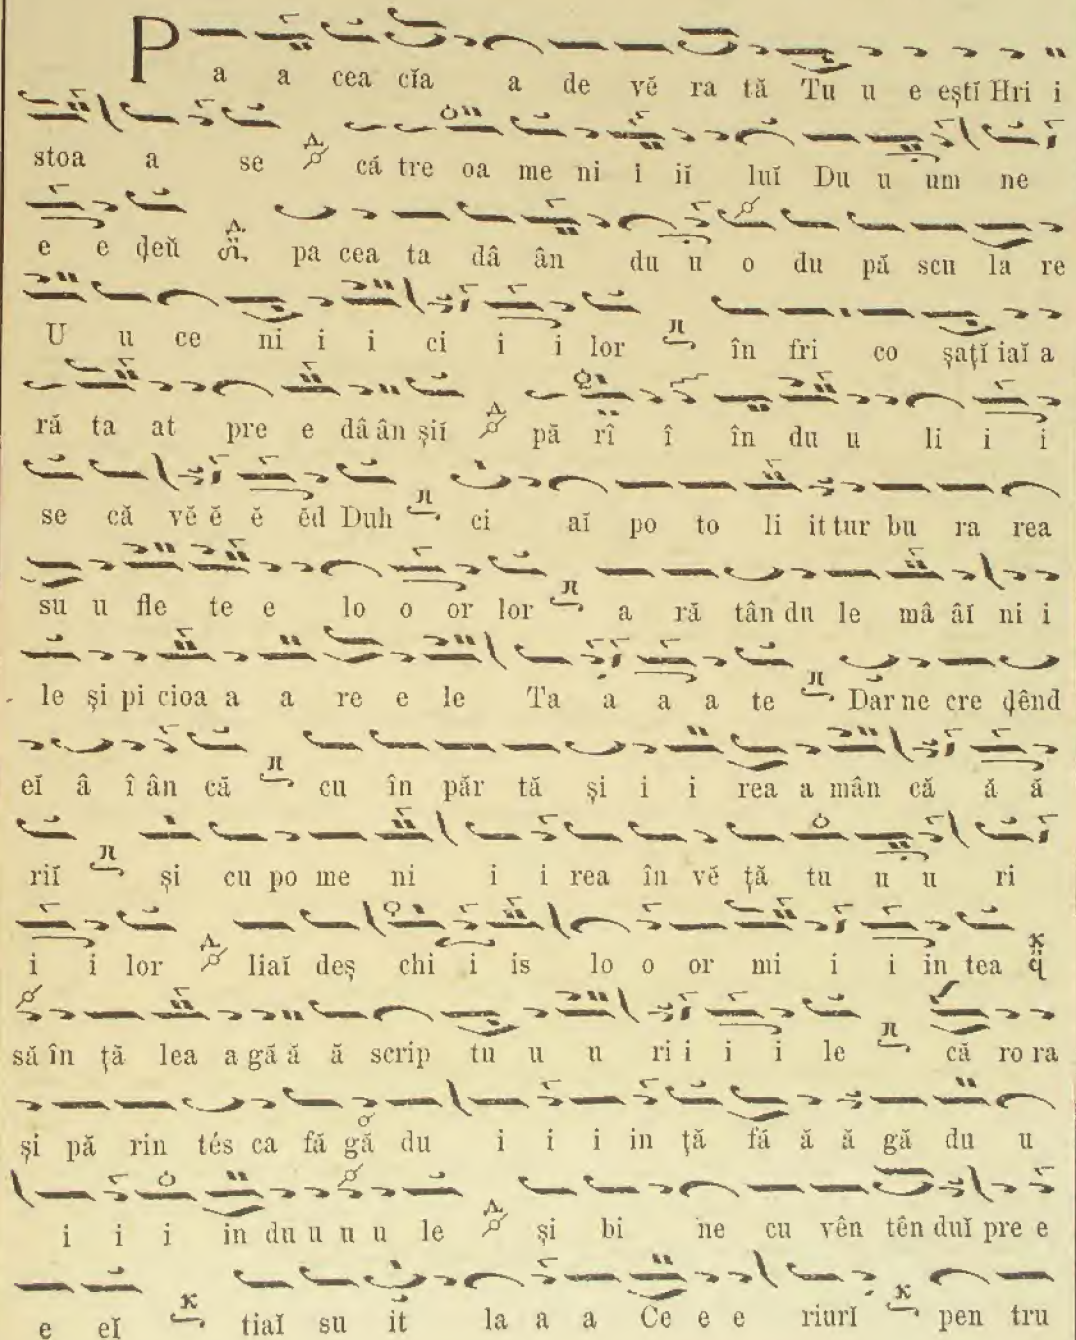 P a a cea cĭa a de vĕ ra tă Tu u e eştĭ Hri i
stoa a se că tre oa me ni i ii luĭ Du u um ne
e e ḑeŭ pa cea ta dâ ân du u o du pă scu la re
U u ce ni i i ci i i lor în fri co şaţĭ iaĭ a
ră ta at pre e dâ ân şiĭ pă rî î în du u li i i
se că vĕ ĕ ĕ ĕd Duh ci aĭ po to li it tur bu ra rea
su u fle te e lo o or lor a ră tân du le mâ âĭ ni i
le şi pi cioa a a re e le Ta a a a te Dar ne cre ḑênd
eĭ â î ân că cu în păr tă şi i i rea a mân că ă ă
riĭ şi cu po me ni i i rea în vĕ ţă tu u u ri
i i lor liaĭ deş chi i is lo o or mi i i in tea
să în ţă lea a gă ă ă scrip tu u u ri i i i le că ro ra
şi pă rin tés ca fă gă du i i i in ţă fă ă ă gă du u
i i i in du u u u le şi bi ne cu vên tên duĭ pre e
e eĭ tiaĭ su it la a a Ce e e riurĭ pen tru